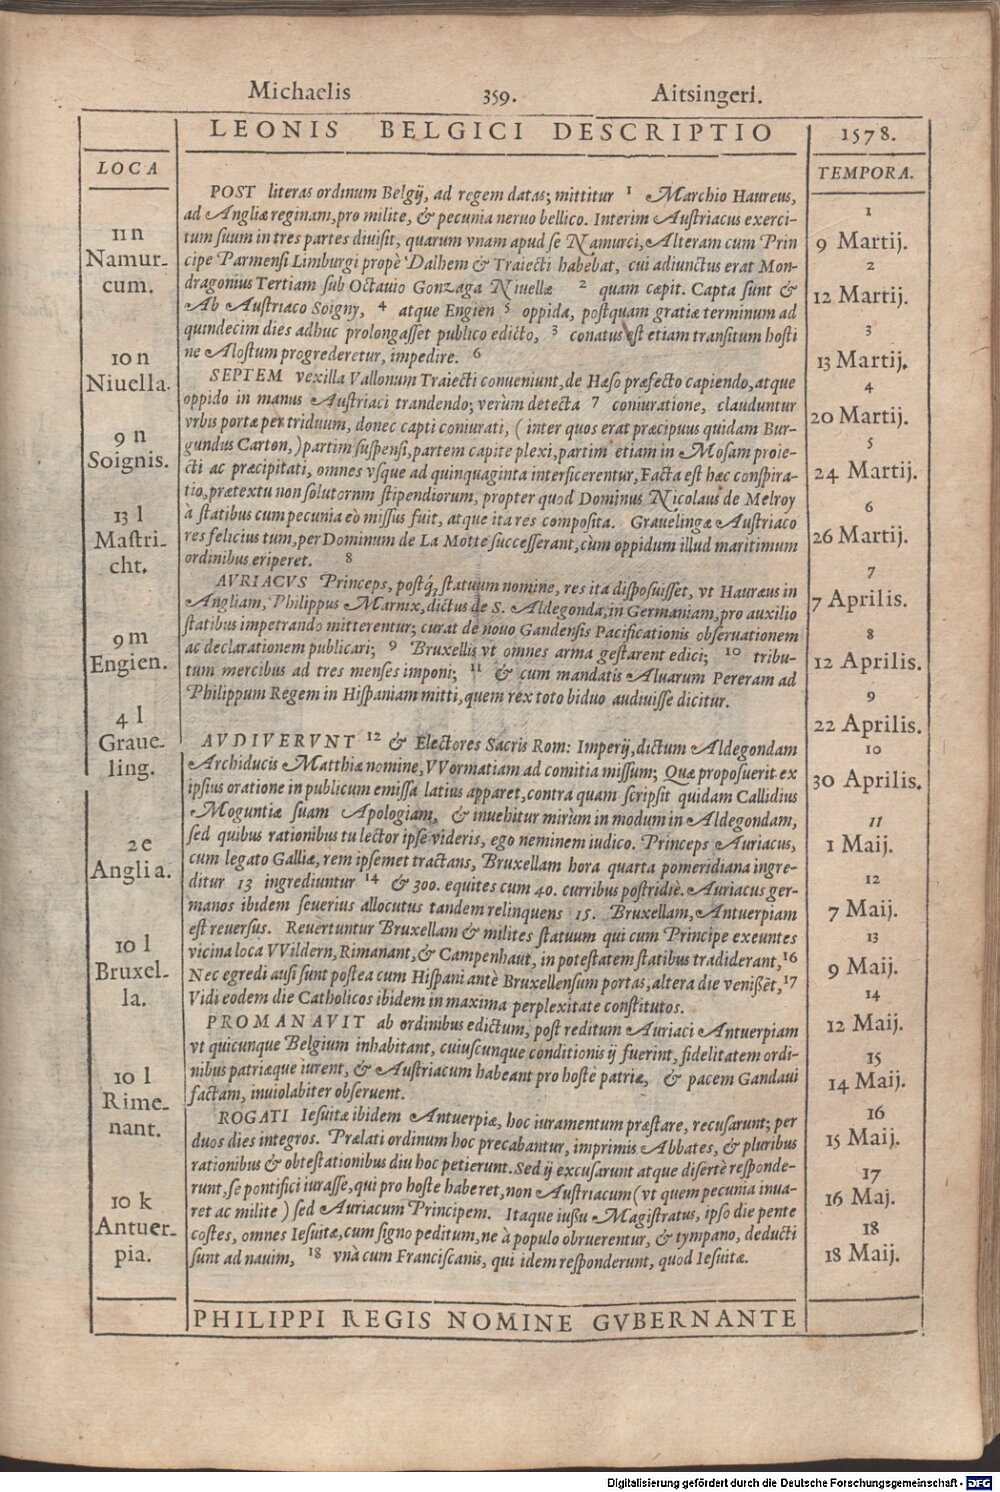 Michaelis 359. Aitsingeri.
LEONIS BELGICI DESCRIPTIO
1578.
LOCA
11 n
Namur-
cum.
10 n
Niuella.
9 n
Soignis.
13 l
Mastri-
cht.
9 m
Engien.
4 l
Graue-
ling.
2 e
Anglia.
10 l
Bruxel-
la.
10 l
Rime-
nant.
10 k
Antuer-
pia.
POST literas ordinum Belgij, ad regem datas; mittitur 1 Marchio Haureus,
ad Angliæ reginam, pro milite, & pecunia neruo bellico. Interim Austriacus exerci-
tum suum in tres partes diuisit, quarum vnam apud se Namurci, Alteram cum Prin
cipe Parmensi Limburgi propè Dalhem & Traiecti habebat, cui adiunctus erat Mon-
dragonius Tertiam sub Octauio Gonzaga Niuellæ 2 quam cœpit. Capta sunt &
Ab Austriaco Soigny, 4 atque Engien 5 oppida, postquam gratiæ terminum ad
quindecim dies adhuc prolongasset publico edicto, 3 conatus est etiam transitum hosti
ne Alostum progrederetur, impedire. 6
SEPTEM vexilla Vallonum Traiecti conueniunt, de Hæso præfecto capiendo, atque
oppido in manus Austriaci trandendo; verùm detecta 7 coniuratione, clauduntur
vrbis portæ per triduum, donec capti coniurati, ( inter quos erat præcipuus quidam Bur-
gundus Carton, ) partim suspensi, partem capite plexi, partim etiam in Mosam proie-
cti ac præcipitati, omnes vsque ad quinquaginta interficerentur, Facta est hæc conspira-
tio, prætextu non solutornm stipendiorum, propter quod Dominus Nicolaus de Melroy
à statibus cum pecunia eò missus fuit, atque ita res composita. Grauelingæ Austriaco
res felicius tum, per Dominum de La Motte successerant, cùm oppidum illud maritimum
ordinibus eriperet. 8
AVRIACVS Princeps, postq́, statuum nomine, res ita disposuisset, vt Hauræus in
Angliam, Philippus Marnix, dictus de S. Aldegonda, in Germaniam, pro auxilio
statibus impetrando mitterentur; curat de nouo Gandensis Pacificationis obseruationem
ac declarationem publicari; 9 Bruxellis vt omnes arma gestarent edici; 10 tribu-
tum mercibus ad tres menses imponi; 11 & cum mandatis Aluarum Pereram ad
Philippum Regem in Hispaniam mitti, quem rex toto biduo audiuisse dicitur.
AVDIVERVNT 12 & Electores Sacris Rom: Imperij, dictum Aldegondam
Archiducis Matthiæ nomine, VVormatiam ad comitia missum; Quæ proposuerit ex
ipsius oratione in publicum emissa latius apparet, contra quam scripsit quidam Callidius
Moguntiæ suam Apologiam, & inuehitur mirùm in modum in Aldegondam,
sed quibus rationibus tu lector ipse videris, ego neminem iudico. Princeps Auriacus,
cum legato Galliæ, rem ipsemet tractans, Bruxellam hora quarta pomeridiana ingre-
ditur 13 ingrediuntur 14 & 300. equites cum 40. curribus postridiè. Auriacus ger-
manos ibidem seuerius allocutus tandem relinquens 15. Bruxellam, Antuerpiam
est reuersus. Reuertuntur Bruxellam & milites statuum qui cum Principe exeuntes
vicina loca VVildern, Rimanant, & Campenhaut, in potestatem statibus tradiderant, 16
Nec egredi ausi sunt postea cum Hispani antè Bruxellensum portas, altera die venissēt, 17
Vidi eodem die Catholicos ibidem in maxima perplexitate constitutos.
PROMANAVIT ab ordinibus edictum, post reditum Auriaci Antuerpiam
vt quicunque Belgium inhabitant, cuiuscunque conditionis ij fuerint, fidelitatem ordi-
nibus patriæque iurent, & Austriacum habeant pro hoste patriæ, & pacem Gandaui
factam, inuiolabiter obseruent.
ROGATI Iesuitæ ibidem Antuerpiæ, hoc iuramentum præstare, recusarunt; per
duos dies integros. Prælati ordinum hoc precabantur, imprimis Abbates, & pluribus
rationibus & obtestationibus diu hoc petierunt. Sed ij excusarunt atque disertè responde-
runt, se pontifici iurasse, qui pro hoste haberet, non Austriacum ( vt quem pecunia iuua-
ret ac milite ) sed Auriacum Principem. Itaque iussu Magistratus, ipso die pente
costes, omnes Iesuitæ, cum signo peditum, ne à populo obruerentur, & tympano, deducti
sunt ad nauim, 18 vnà cum Franciscanis, qui idem responderunt, quod Iesuitæ.
TEMPORA.
1
9 Martij.
2
12 Martij.
3
13 Martij.
4
20 Martij.
5
24 Martij.
6
26 Martij.
7
7 Aprilis.
8
12 Aprilis.
9
22 Aprilis.
10
30 Aprilis.
11
1 Maij.
12
7 Maij.
13
9 Maij.
14
12 Maij.
15
14 Maij.
16
15 Maij.
17
16 Maj.
18
18 Maij.
PHILIPPI REGIS NOMINE GVBERNANTE
Digitalisierung gefördert durch die Deutsche Forschungsgemeinschaft - DFG